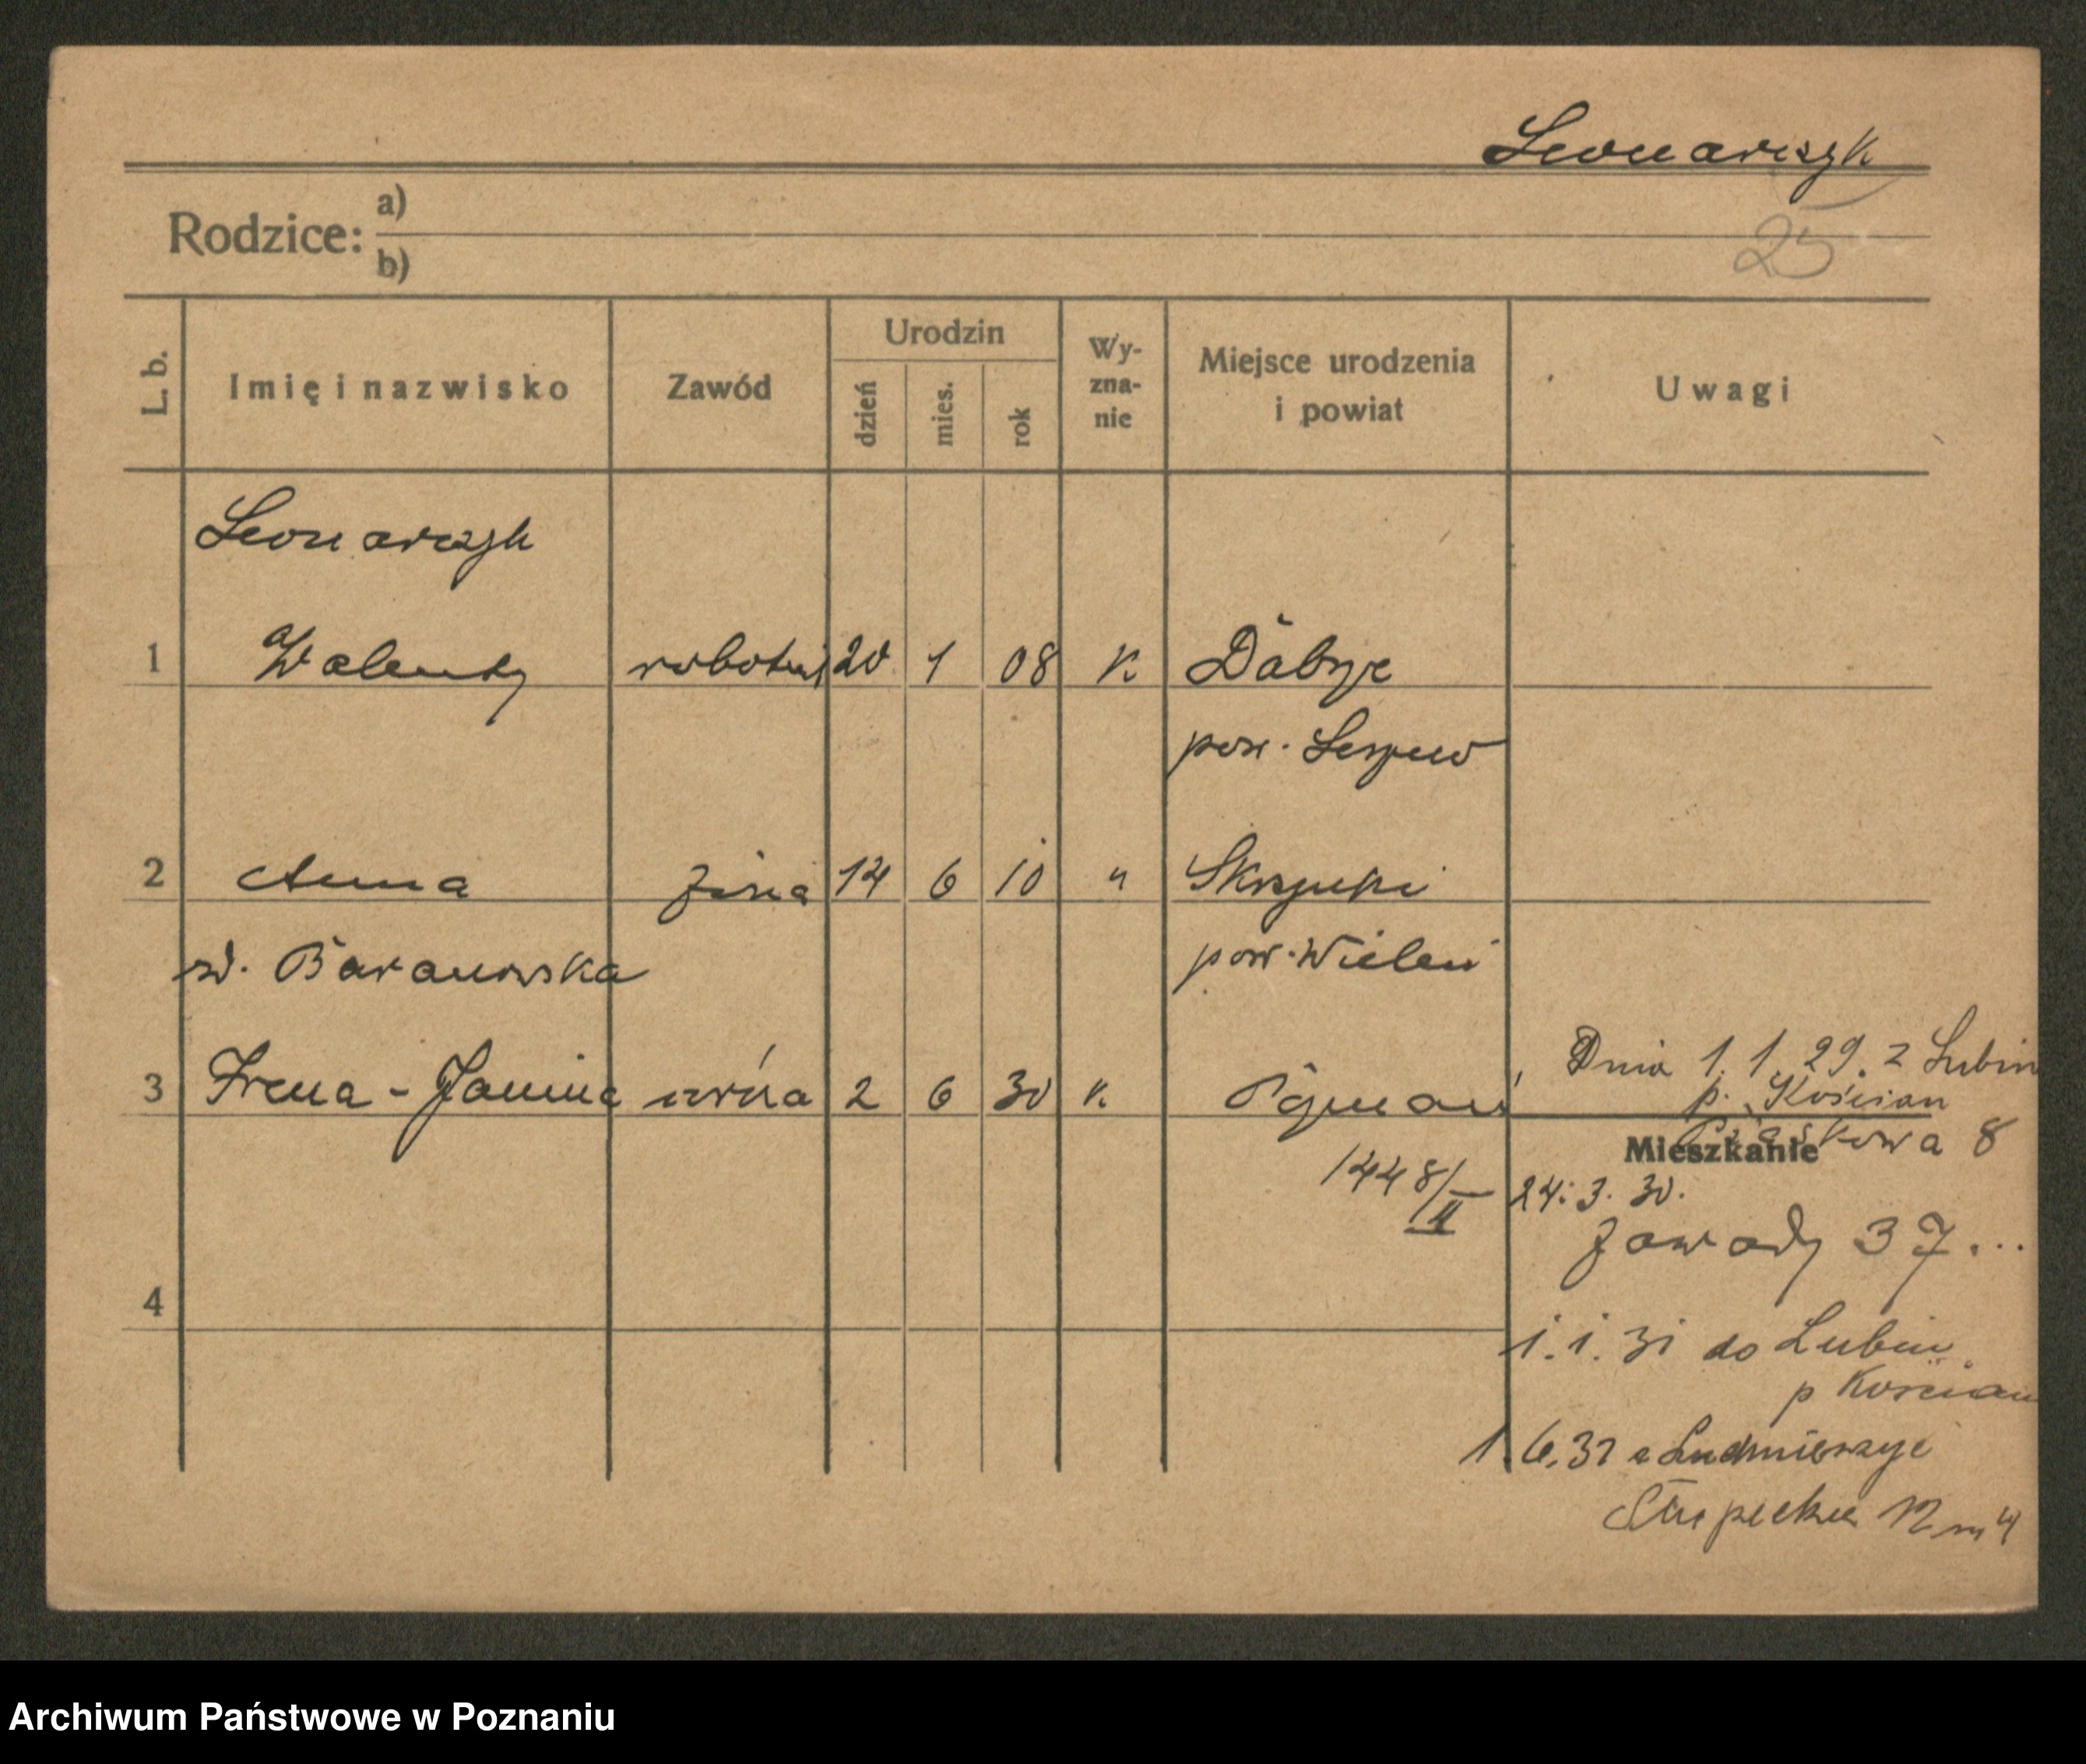 Leonarczyk
Rodzice: a)
b)
25
L. b. Imię i nazwisko Zawód Urodzin dzień mies. rok Wy-zna-nie Miejsce urodzenia i powiat Uwagi
Leonarczyk
1 Walenty robotnik 20 1 08 K
pow.
2 Anna żona 14 6 10 "
pow. Wieluń
zd. Baranowska
3 Irena - Janina córka 2 6 30 K. Poznań
Dnia 1. 1. 29. z Lubin
p. Kościan
Piaskowa 8
Mieszkanie
1448/II
24. 3. 30.
Zawady 37...
4
1. 1. 31 do Lubin
p Kościan
1.6.31 z
12 m 4
Archiwum Państwowe w Poznaniu